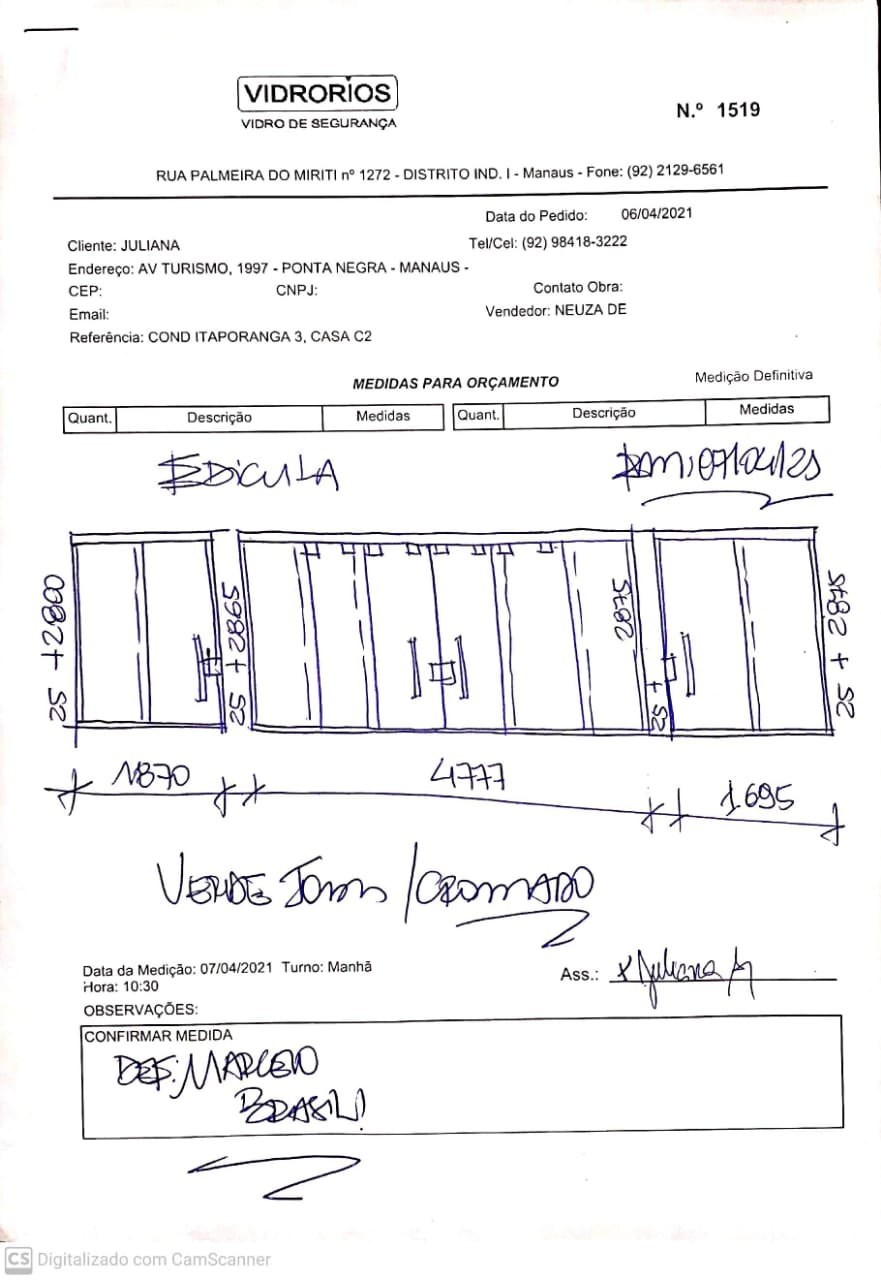 VIDRORIOS
VIDRO DE SEGURANÇA
N.º 1519
RUA PALMEIRA DO MIRITI nº 1272 - DISTRITO IND. I - Manaus - Fone: (92) 2129-6561
Data do Pedido: 06/04/2021
Cliente: JULIANA Tel/Cel: (92) 98418-3222
Endereço: AV TURISMO, 1997 - PONTA NEGRA - MANAUS -
CEP: CNPJ: Contato Obra:
Email: Vendedor: NEUZA DE
Referência: COND ITAPORANGA 3, CASA C2
MEDIDAS PARA ORÇAMENTO Medição Definitiva
Quant. Descrição Medidas Quant. Descrição Medidas
EDICULA 07/04/21
25 +2800
25 +2865
25 + 2875
25 + 2875
1870 4777 1695
VERDE /CROMADO
Data da Medição: 07/04/2021 Turno: Manhã
Hora: 10:30
Ass.: x Juliana
OBSERVAÇÕES:
CONFIRMAR MEDIDA
DEF: MARCELO
BRASIL
CS Digitalizado com CamScanner